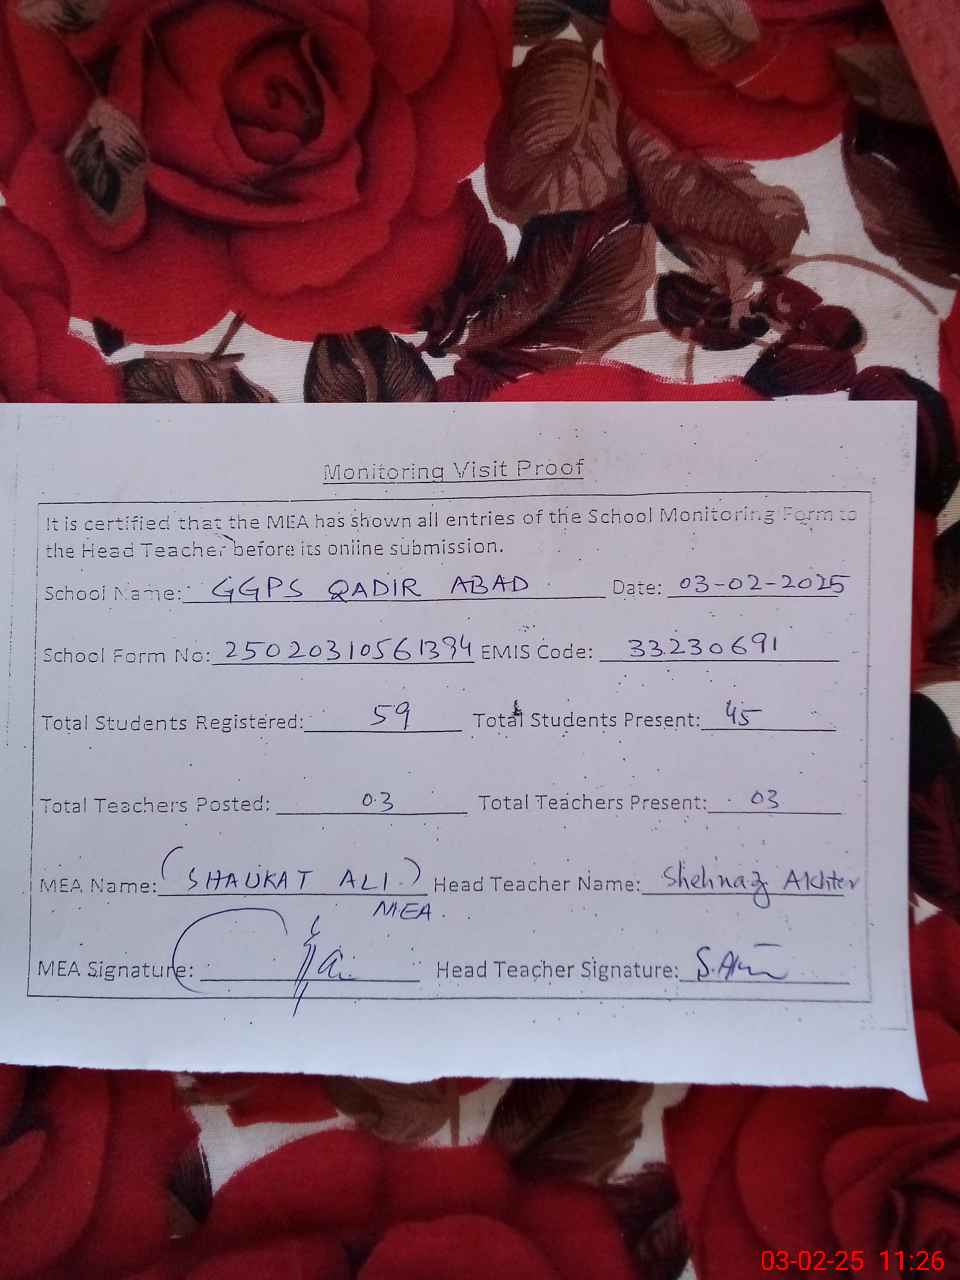 Monitoring Visit Proof
It is certified that the MEA has shown all entries of the School Monitoring Form to
the Head Teacher before its online submission.
School Name: GGPS QADIR ABAD Date: 03-02-2025
School Form No: 25020310561394 EMIS Code: 33230691
Total Students Registered: 59 Total Students Present: 45
Total Teachers Posted: 03 Total Teachers Present: 03
MEA Name: (SHAUKAT ALI) Head Teacher Name: Shehnaz Akhter
MEA
MEA Signature: Head Teacher Signature:
03-02-25 11:26